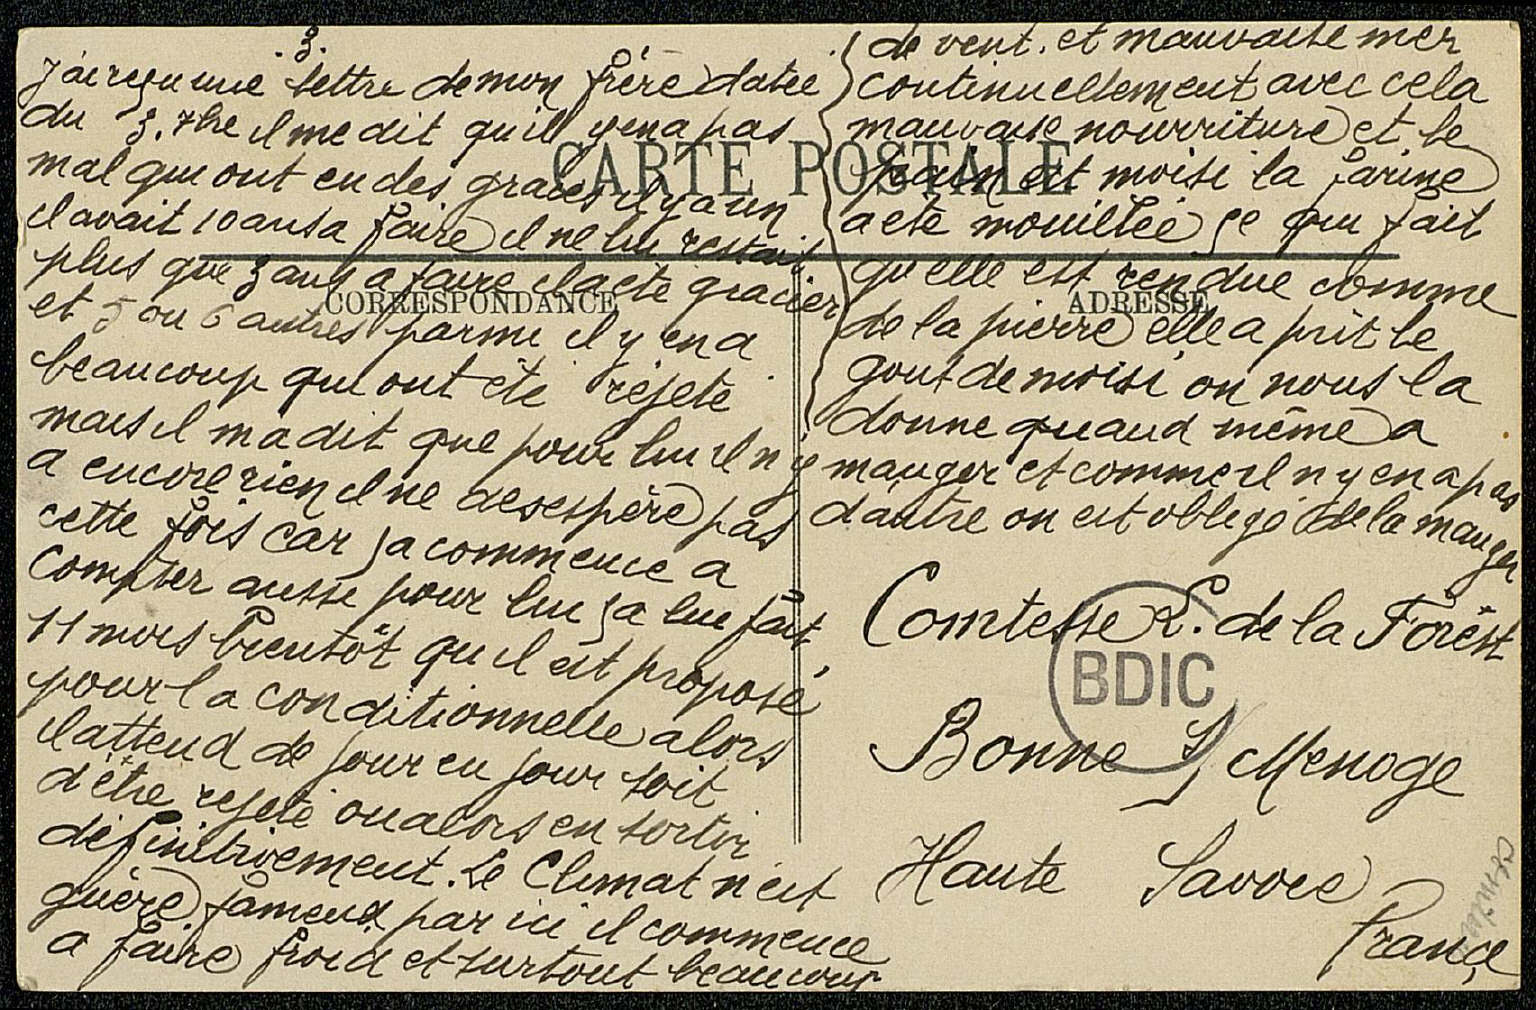 .3.
J'ai reçu une lettre de mon frère datée
du 3. 7bre il me dit qu'il y en a pas
mal qui ont eu des graces il y a un
il avait 10 ans a faire il ne lui restait
plus que 3 ans a faire il a été gracier
et 5 ou 6 autres parmi il y en a
beaucoup qui ont été rejeté
mais il m a dit que pour lui il n y
a encore rien il ne desespère pas
cette fois car ça commence a
compter aussi pour lui ça lui fait
11 mois bientôt qu il est proposé
pour la conditionnelle alors
il attend de jour en jour soit
d'être rejeté ou alors en sortir
définitivement. Le Climat n'est
guère fameux par ici il commence
a faire froid et surtout beaucoup
de vent. et mauvaise mer
continuellement avec cela
mauvaise nourriture et le
pain est moisi la farine
a été mouillée ce qui fait
qu elle est rendue comme
de la pierre elle a prit le
gout de moisi on nous la
donne quand même a
manger et comme il n y en a pas
d'autre on est obligé de la manger
CARTE POSTALE
CORRESPONDANCE
ADRESSE
Comtesse L. de la Forêst
BDIC
Bonne S/ Menoge
Haute Savoie
France